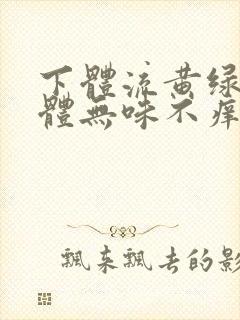 下體流黃綠
體無味不痒
飄來飄去的影